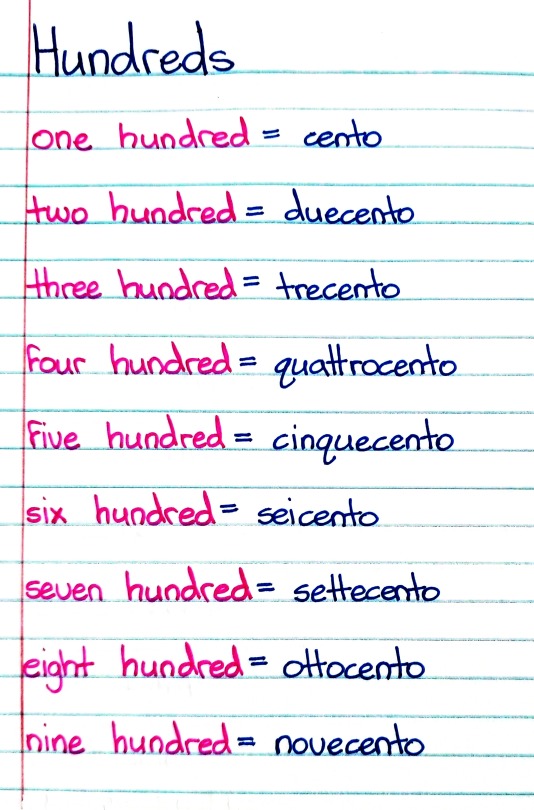 Hundreds
one hundred = cento
two hundred = duecento
three hundred = trecento
four hundred = quattrocento
five hundred = cinquecento
six hundred = seicento
seven hundred = settecento
eight hundred = ottocento
nine hundred = novecento